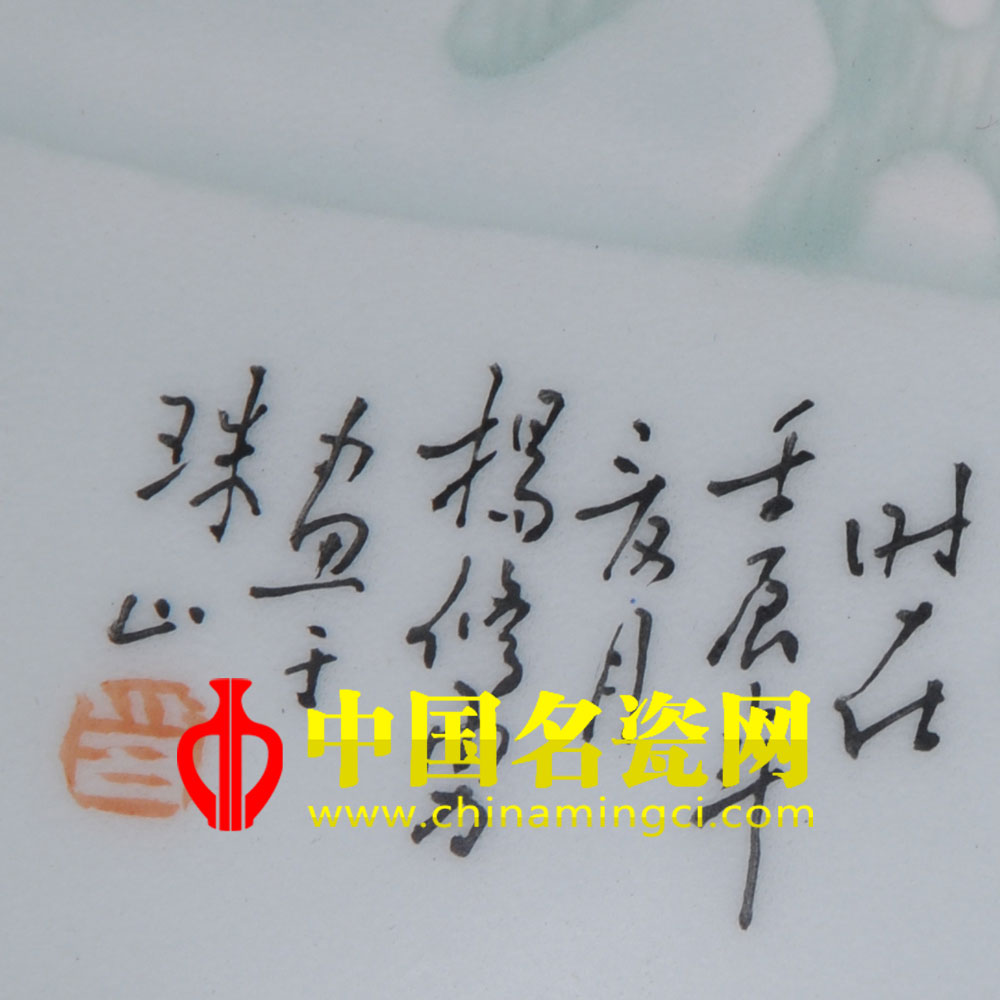 时在
壬辰年
夏月
楊修
画于
珠山
中国名瓷网
www.chinamingci.com